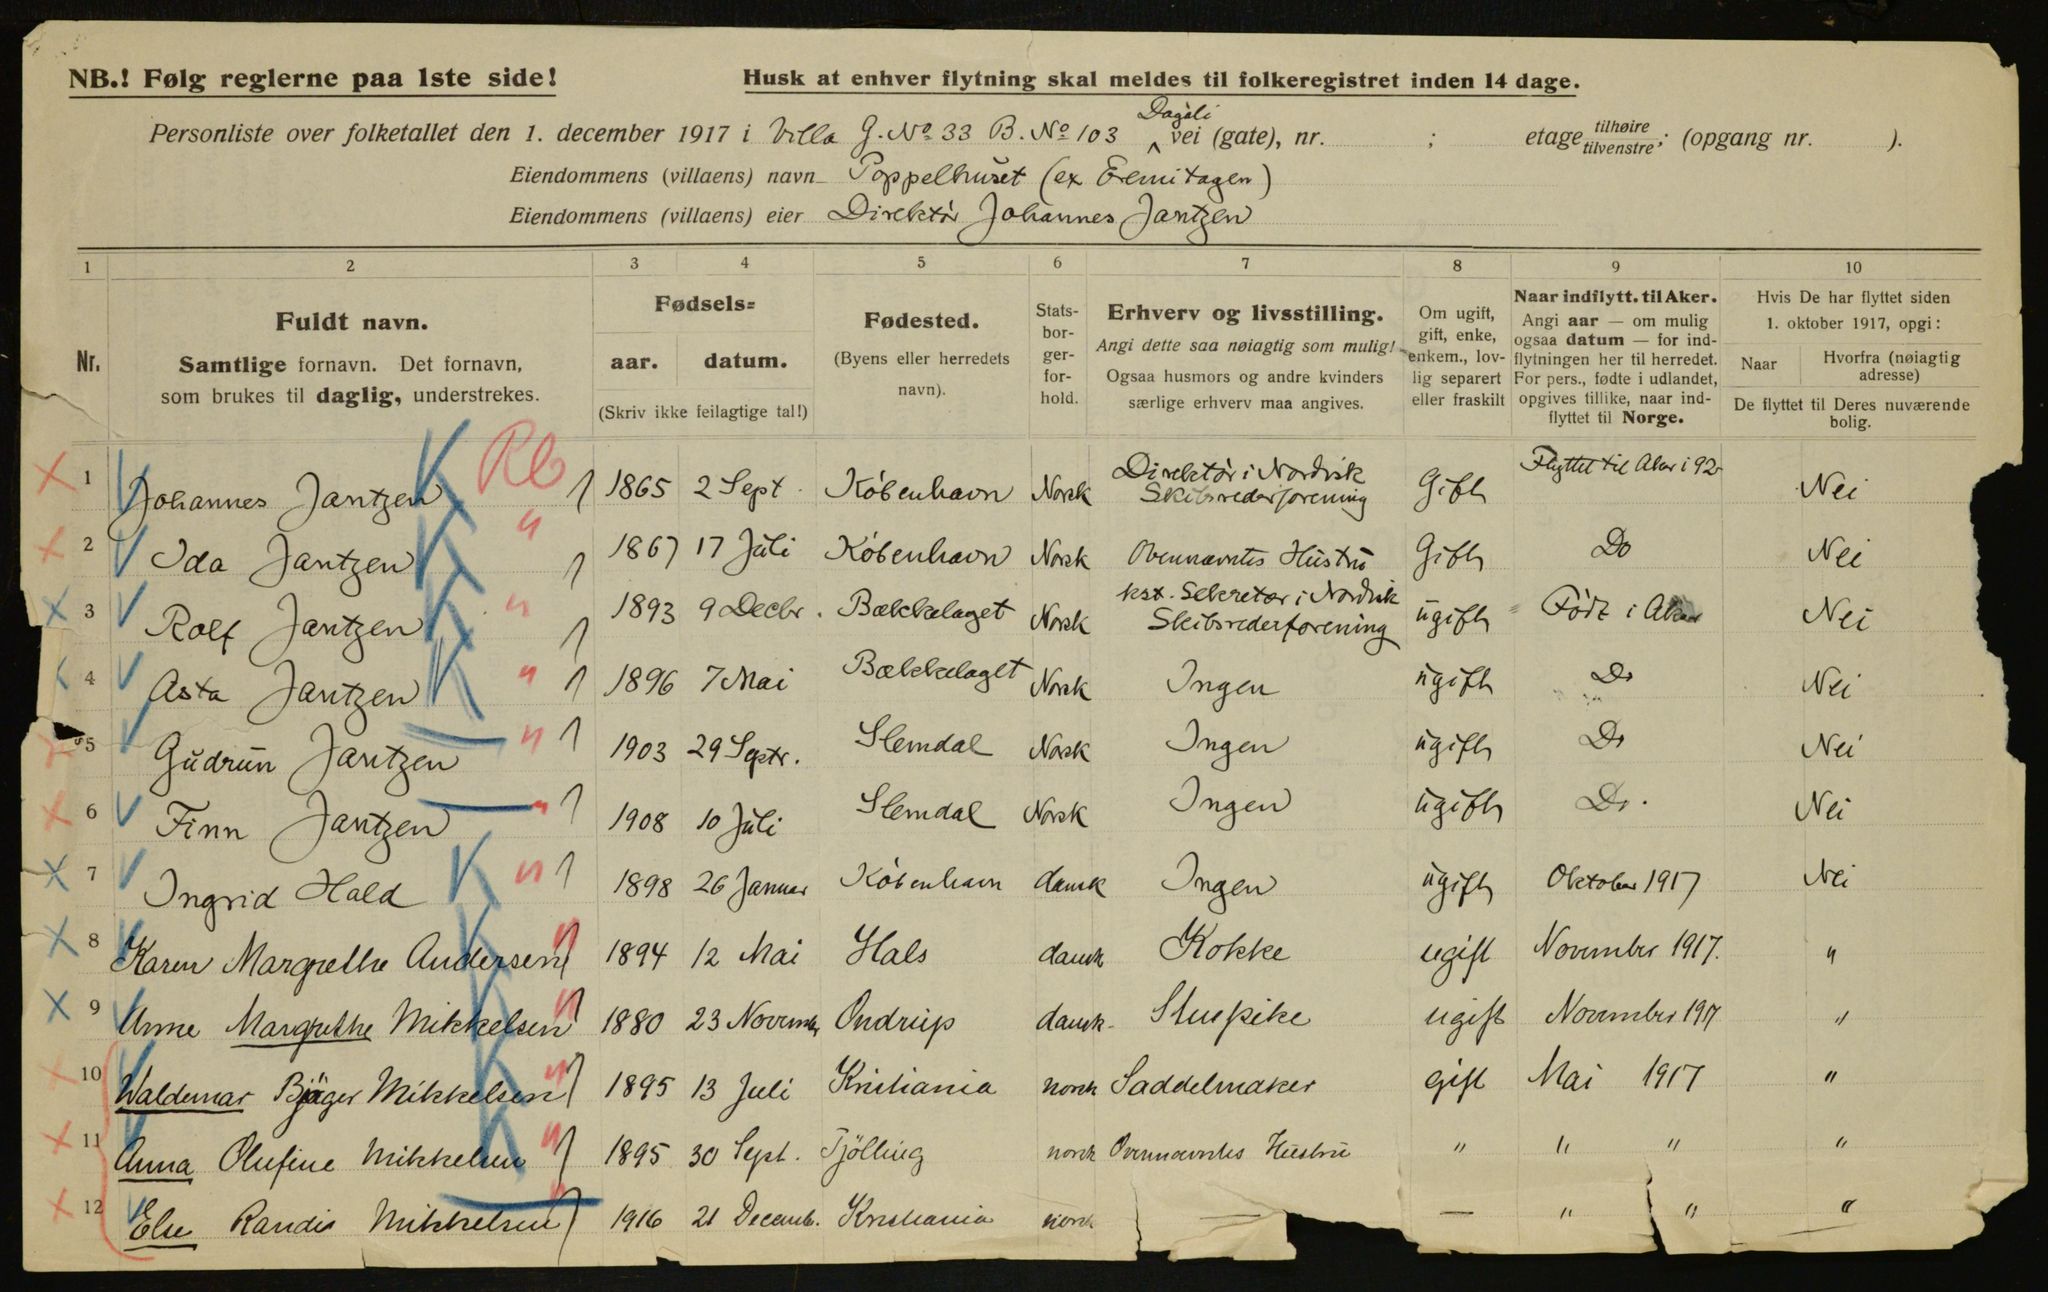 NB.! Følg reglerne paa 1ste side!
Husk at enhver flytning skal meldes til folkeregistret inden 14 dage.
Personliste over folketallet den 1. december 1917 i Villa G. No 33 B. No 103 Dagali vei (gate), nr. ; etage tilhøire tilvenstre; (opgang nr. ).
Eiendommens (villaens) navn Poppelhuset (ex Eremitagen)
Eiendommens (villaens) eier Direktør Johannes Jantzen
1 2 3 4 5 6 7 8 9 10
Nr.
Fuldt navn.
Samtlige fornavn. Det fornavn,
som brukes til daglig, understrekes.
Fødsels=
aar. datum.
(Skriv ikke feilagtige tal!)
Fødested.
(Byens eller herredets
navn).
Stats-
bor-
ger-
for-
hold.
Erhverv og livsstilling.
Angi dette saa nøiagtig som mulig!
Ogsaa husmors og andre kvinders
særlige erhverv maa angives.
Om ugift,
gift, enke,
enkem., lov-
lig separert
eller fraskilt
Naar indflytt. til Aker.
Angi aar — om mulig
ogsaa datum — for ind-
flytningen her til herredet.
For pers., fødte i udlandet,
opgives tillike, naar ind-
flyttet til Norge.
Hvis De har flyttet siden
1. oktober 1917, opgi:
Naar
Hvorfra (nøiagtig
adresse)
De flyttet til Deres nuværende
bolig.
1 Johannes Jantzen K Rb 1865 2 Sept. København Norsk Direktør i Nordisk Skibsrederforening Gift Flyttet til Aker i 92 Nei
2 Ida Jantzen K " 1867 17 Juli København Norsk Ovennævntes Hustru Gift Do Nei
3 Rolf Jantzen K " 1893 9 Decbr. Bækkelaget Norsk kst. Sekretær i Nordisk Skibsrederforening ugift Født i Aker Nei
4 Asta Jantzen K " 1896 7 Mai Bækkelaget Norsk Ingen ugift Do Nei
5 Gudrun Jantzen " 1903 29 Septr. Slemdal Norsk Ingen ugift Do Nei
6 Finn Jantzen " 1908 10 Juli Slemdal Norsk Ingen ugift Do. Nei
7 Ingrid Hald K " 1898 26 Januar København dansk Ingen ugift Oktober 1917 Nei
8 Karen Margrethe Andersen K " 1894 12 Mai Hals dansk Kokke ugift November 1917. "
9 Anne Margrethe Mikkelsen K " 1880 23 November Ondrup dansk Stuepike ugift November 1917 "
10 Waldemar Mikkelsen K " 1895 13 Juli Kristiania norsk Saddelmaker gift Mai 1917 "
11 Anna Olufine Mikkelsen K " 1895 30 Sept. Tjölling norsk Ovennævntes Hustru " " " "
12 Else Randi Mikkelsen " 1916 21 Decemb. Kristiania norsk — — " " "